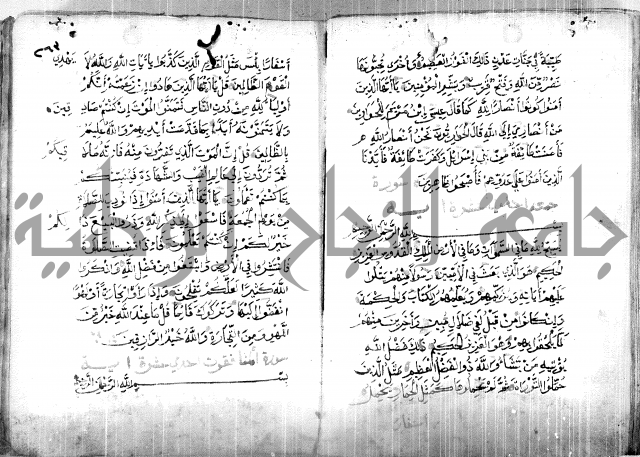 طيبة في جنات عدن ذلك الفوز العظيم وأخرى تحبونها
نصر من الله وفتح قريب وبشر المؤمنين يا أيها الذين
آمنوا كونوا أنصار الله كما قال عيسى ابن مريم للحواريين
من أنصاري إلى الله قال الحواريون نحن أنصار الله
فآمنت طائفة من بني إسرائيل وكفرت طائفة فأيدنا
الذين آمنوا على عدوهم فأصبحوا ظاهرين سورة
جمعة احدى عشرة اية
بسم الله الرحمن الرحيم
يسبح لله ما في السموات وما في الأرض الملك القدوس العزيز
الحكيم هو الذي بعث في الأميين رسولا منهم يتلوا
عليهم آياته ويزكيهم ويعلمهم الكتاب والحكمة
وإن كانوا من قبل لفي ضلال مبين وآخرين منهم
لما يلحقوا بهم وهو العزيز الحكيم ذلك فضل الله
يؤتيه من يشاء والله ذو الفضل العظيم مثل الذين
حملوا التوراة ثم لم يحملوها كمثل الحمار يحمل
أسفارا
أسفارا بئس مثل القوم الذين كذبوا بآيات الله والله لا يهدي
القوم الظالمين قل يا أيها الذين هادوا إن زعمتم أنكم
أولياء لله من دون الناس فتمنوا الموت إن كنتم صادقين
ولا يتمنونه أبدا بما قدمت أيديهم والله عليم
بالظالمين قل إن الموت الذي تفرون منه فإنه ملاقيكم
ثم تردون إلى عالم الغيب والشهادة فينبئكم
بما كنتم تعملون يا أيها الذين آمنوا إذا نودي للصلوة
من يوم الجمعة فاسعوا إلى ذكر الله وذروا البيع ذلكم
خير لكم إن كنتم تعلمون فإذا قضيت الصلوة
فانتشروا في الأرض وابتغوا من فضل الله واذكروا
الله كثيرا لعلكم تفلحون وإذا رأوا تجارة أو لهوا
انفضوا إليها وتركوك قائما قل ما عند الله خير من
اللهو ومن التجارة والله خير الرازقين
سورة المنافقون احدى عشرة اية
بسم الله الرحمن الرحيم
جامعة النجاح الوطنية